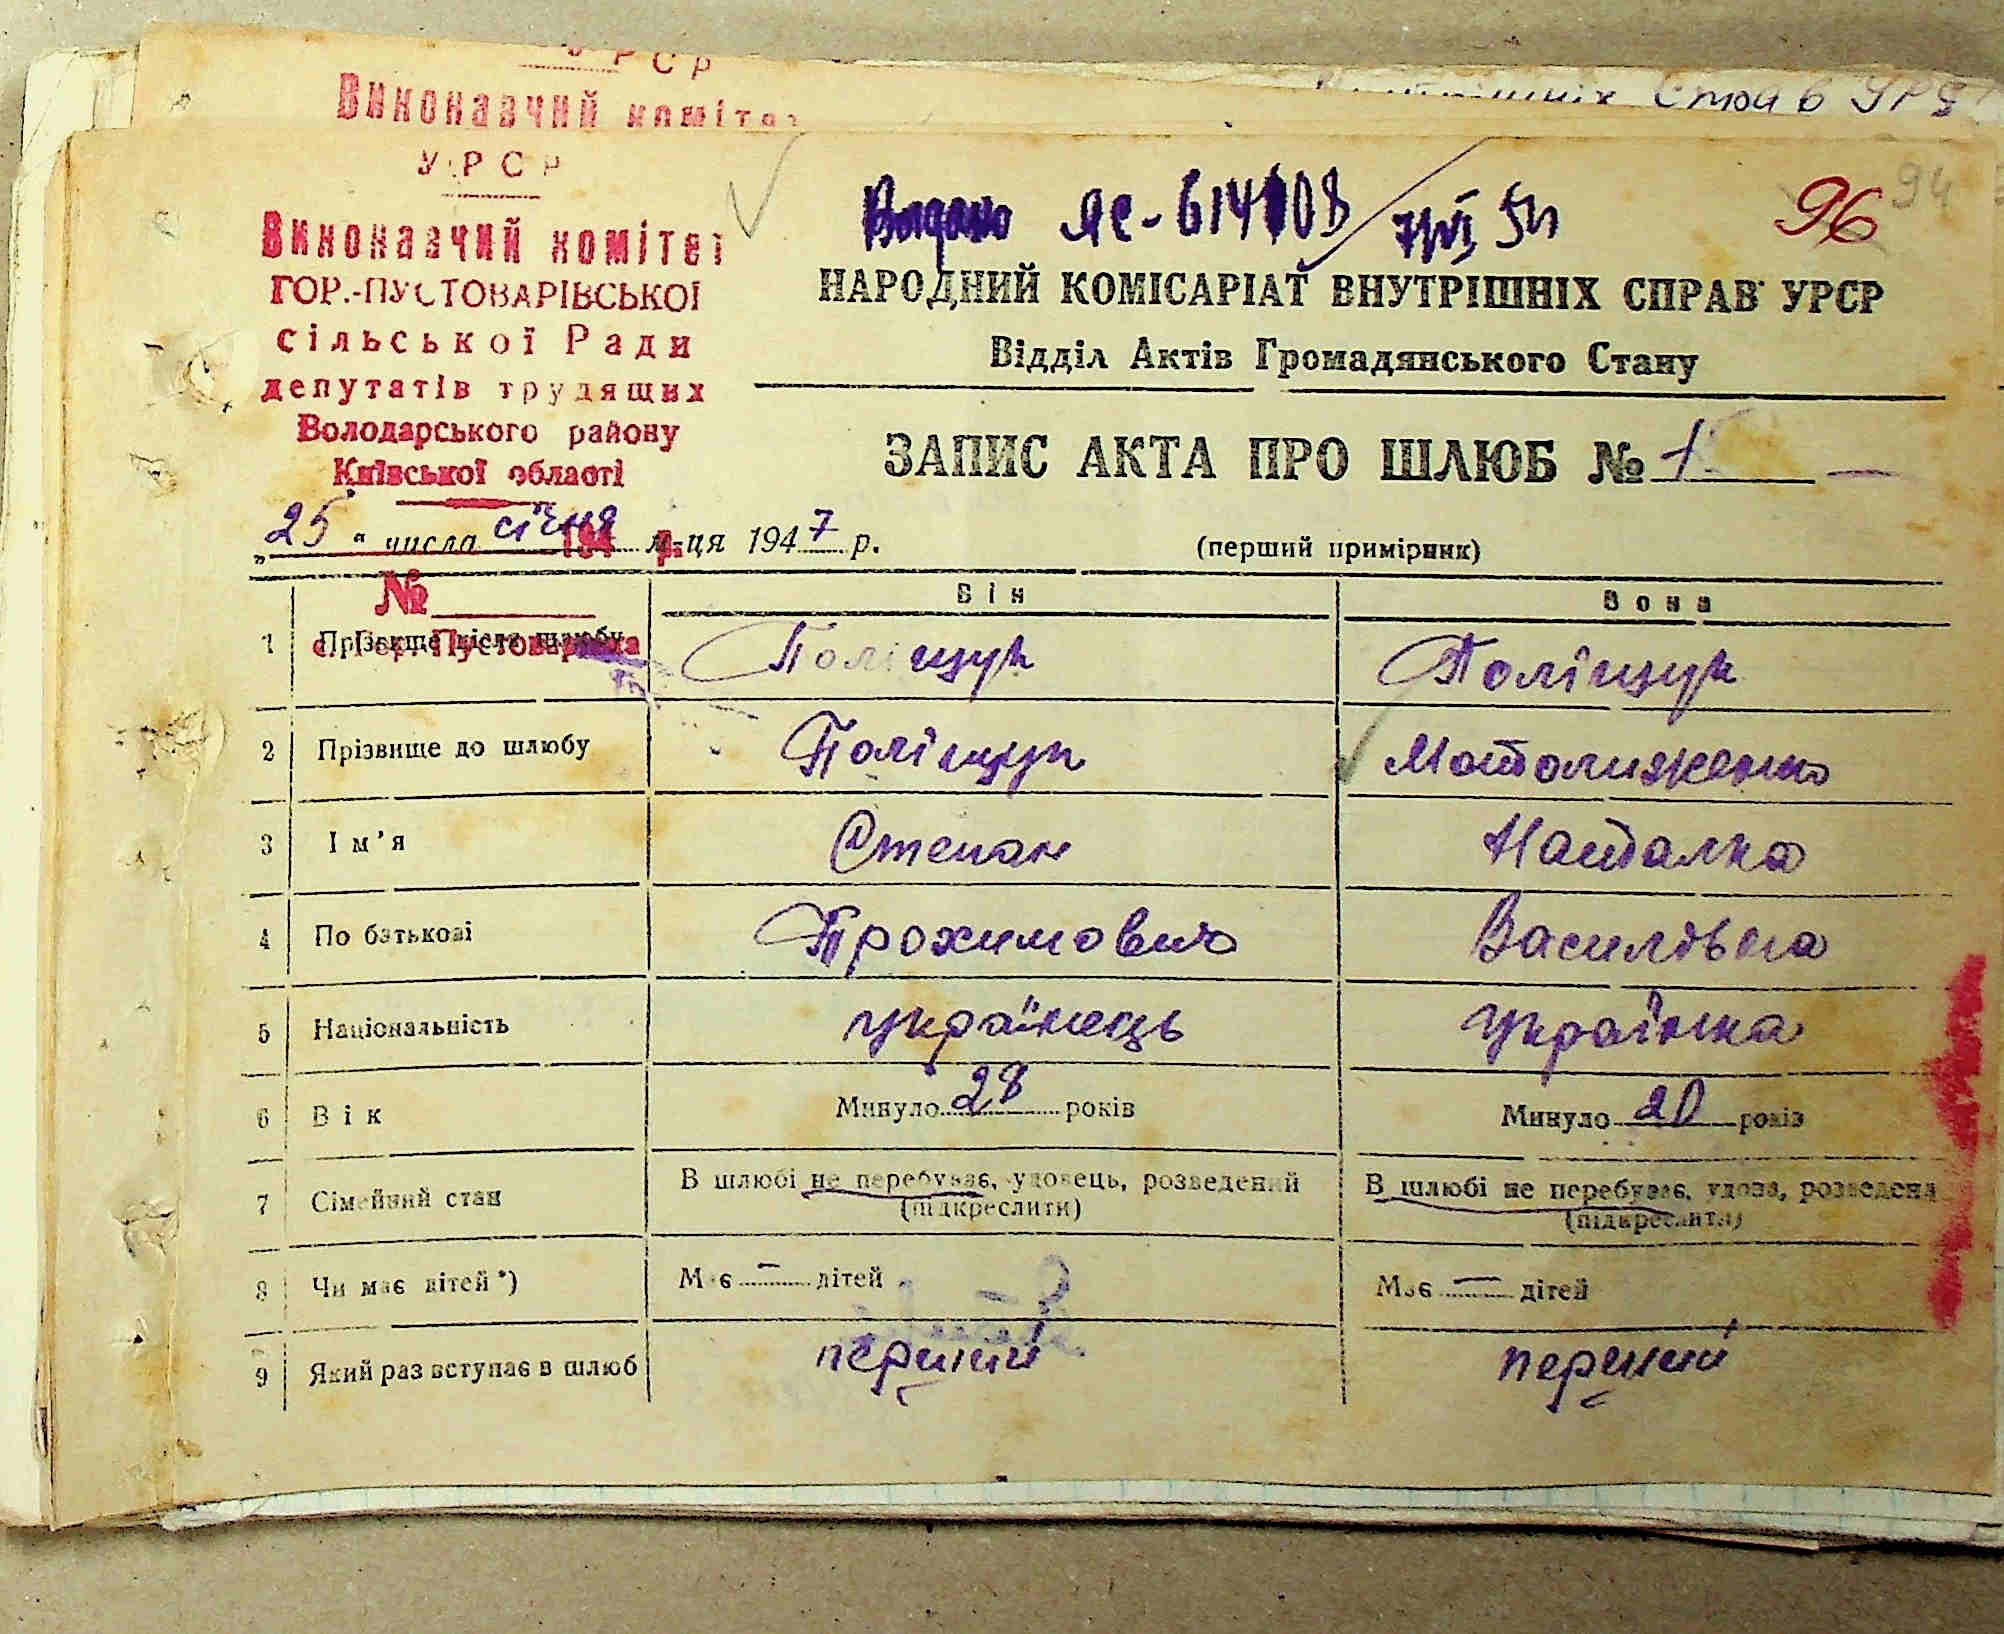 УРСР
Виконавчий комітет
Внутрішніх Справ УРСР
УРСР
Виконавчий комітет
ГОР.-ПУСТОВАРІВСЬКОЇ
сільської Ради
депутатів трудящих
Володарського району
Київської області
194 р.
№
с. Гор. Пустоварівка
Видано ЯС-614108 7/VI 54
96
94
НАРОДНИЙ КОМІСАРІАТ ВНУТРІШНІХ СПРАВ УРСР
Відділ Актів Громадянського Стану
ЗАПИС АКТА ПРО ШЛЮБ № 1
„25“ числа січня м-ця 1947 р.
(перший примірник)
Він Вона
1 Прізвище після шлюбу Поліщук Поліщук
2 Прізвище до шлюбу Поліщук
3 Ім’я Степан Наталка
4 По батькові Трохимович Василівна
5 Національність українець українка
6 Вік Минуло 28 років Минуло 20 років
7 Сімейний стан В шлюбі не перебуває, удовець, розведений В шлюбі не перебуває, удова, розведена
(підкреслити) (підкреслити)
8 Чи має дітей*) Має — дітей Має — дітей
9 Який раз вступає в шлюб перший перший